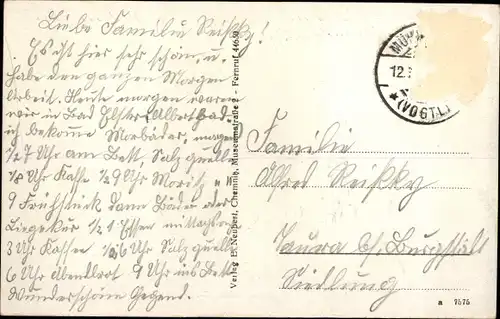 Liebe Familie Reißky!
Es ist hier sehr schön u.
habe den ganzen Morgen
Arbeit. Heute morgen waren
wir in Bad Elster (Albertbad
ich bekomme Moorbäder, morgen
1/2 7 Uhr am Bett, Salzquelle
1/8 Uhr Kaffe 1/2 9 Uhr Moritz
9 Frühstück dann Bäder oder
Liegekur 1/2 1 Essen mittags
3 Uhr Kaffee 1/2 6 Uhr Salzquelle
6 Uhr Abendbrot 9 Uhr ins Bett
Wunderschöne Gegend.
Verlag E. Neubert, Chemnitz, Museumstraße 2 - Fernruf 44630
12.
*(VOGTL)
Familie
Alfred Reißky
Taura b/ Burgstädt
Siedlung
a 7575